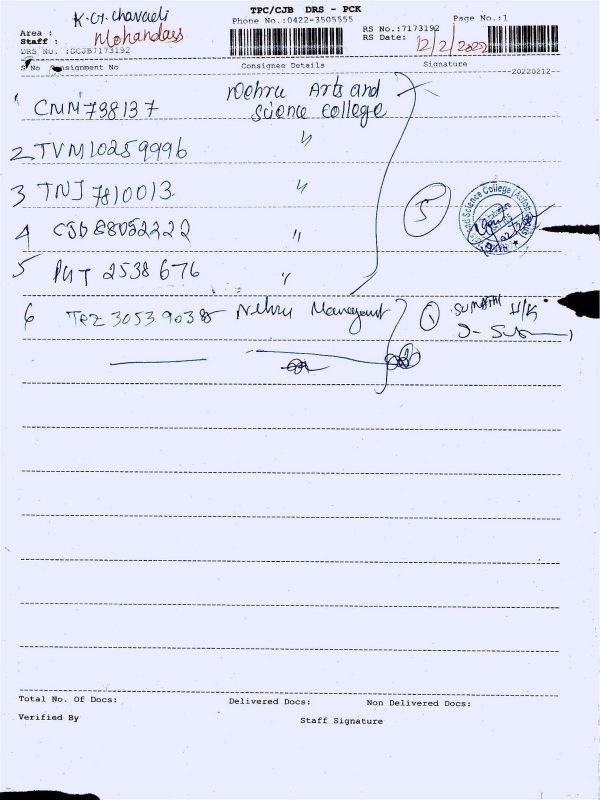 TPC/CJB DRS - PCK
Phone No.:0422-3505555
Page No.:1
Area : K.G. Chavadi
Staff : Mohandass
RS No.:7173192
RS Date: 12/2/2022
DRS No. :DCJB7173192
S No Consignment No Consignee Details Signature
20220212
1 CNM738137 Nehru Arts and
Science College
2 TVM10259996 "
3 TNJ 7810013 "
5
4 CJB88052222 "
5 PUT 2538676 "
6 TEZ 30539038 Nehru Management 1 SUMATHI H/K
Total No. Of Docs: Delivered Docs: Non Delivered Docs:
Verified By Staff Signature